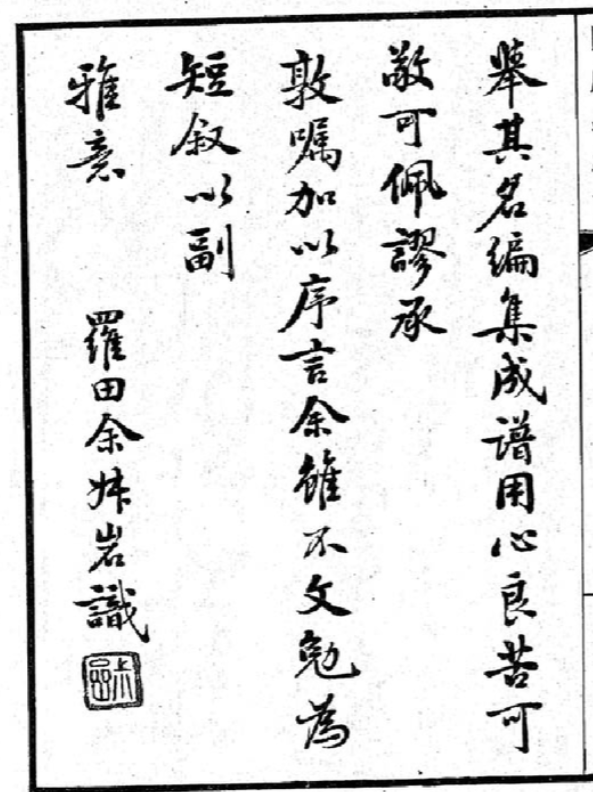 舉其名編集成譜用心良苦可
敬可佩謬承
敦嘱加以序言余雖不文勉為
短叙以副
雅意
羅田余姊岩識